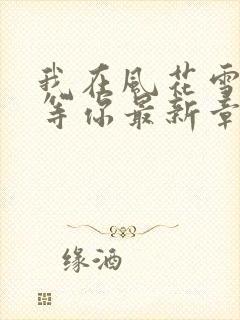 我在風花雪
等你最新章
缘酒